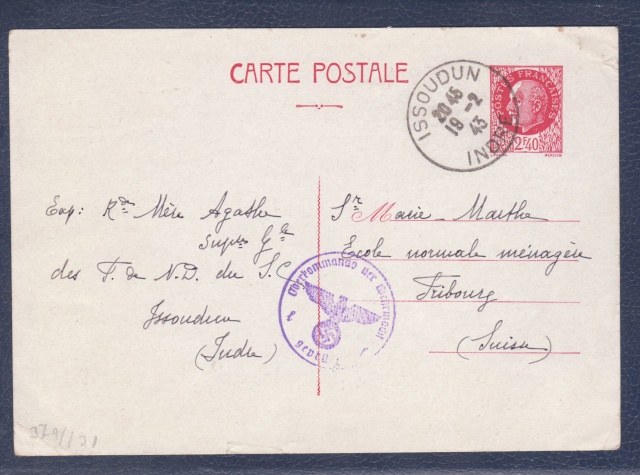 CARTE POSTALE
ISSOUDUN
20 45
19 -2
43
INDRE
POSTES FRANÇAISES
2F40
Exp: Rde Mère Agathe
Supre Gle
des F. de N.D. du S.C
Issoudun
(Indre)
Sr Marie-Marthe
Ecole normale ménagère
Fribourg
(Suisse)
Oberkommando der Wehrmacht
geprüft